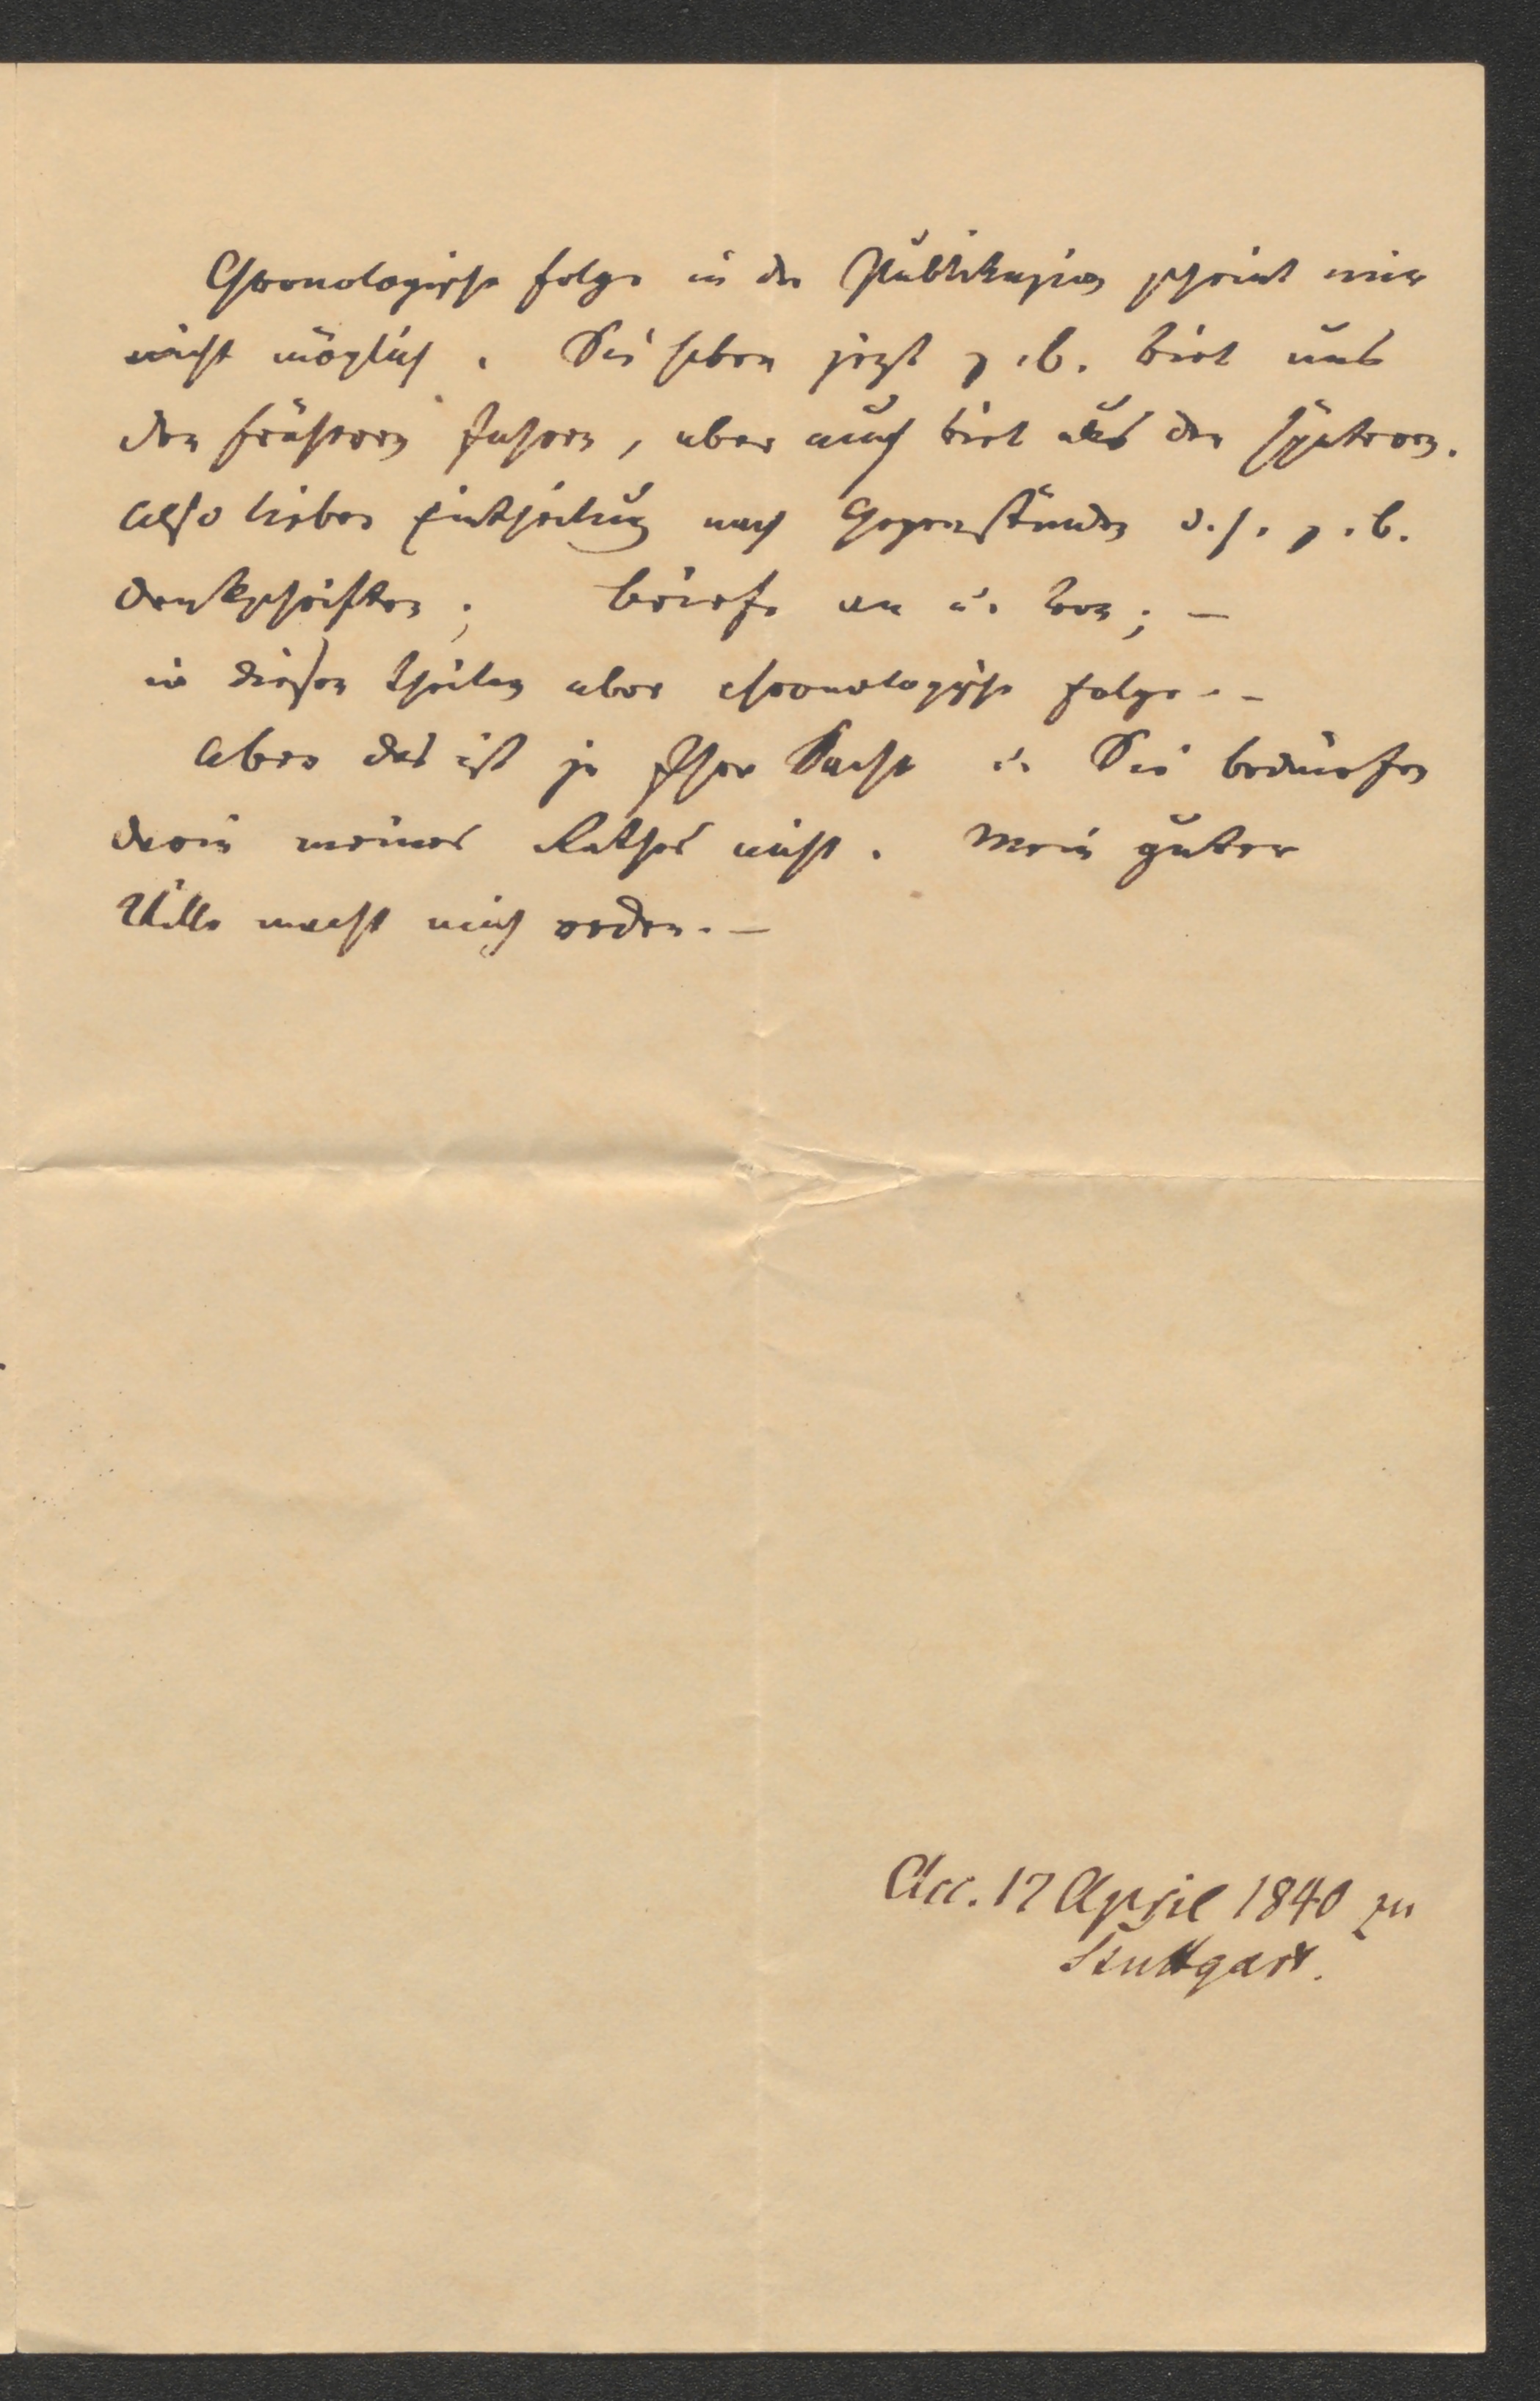 Chronologische Folge in der Publikazion scheint mir
nicht möglich. Sie haben jezt z. b. viel aus
den früheren Jahren, aber auch viel aus den späteren.
Also lieber Eintheilung nach Gegenständen d. h. z. b.
Denkschriften; briefe an u. von; –
in diesen Theilen aber chronologische Folge. –
Aber das ist ja Ihre Sache u. Sie bedürfen
darin meines Rathes nicht. Mein guter
Wille macht mich reden. –
Acc. 17 April 1840 zu
Stuttgart.